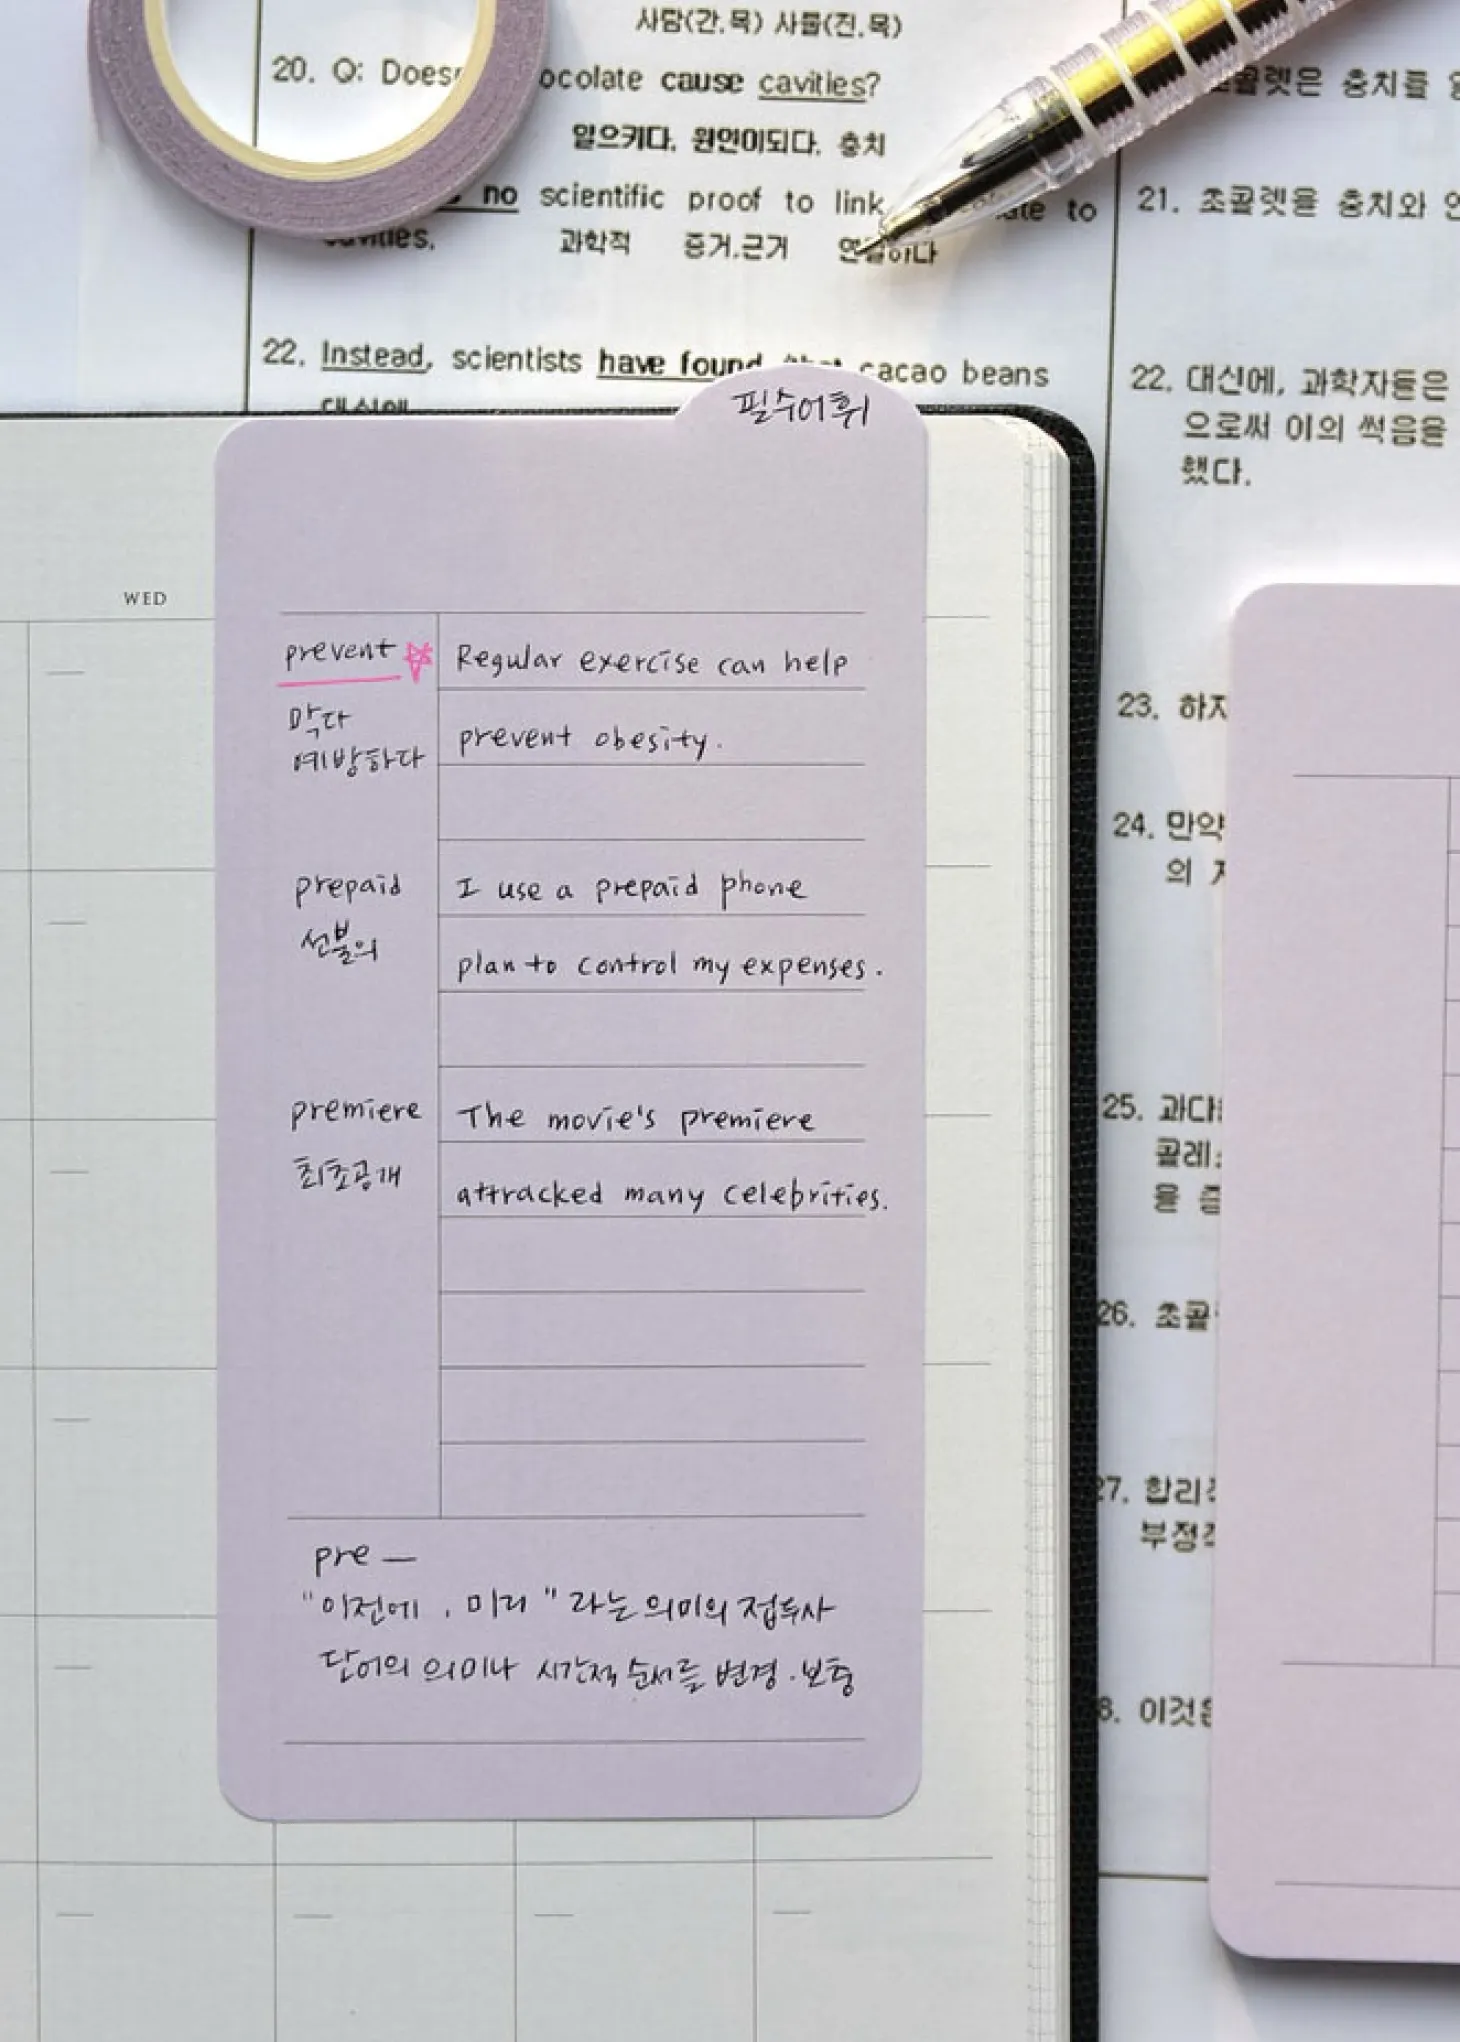 사람(간.목) 사물(진.목)
20. Q: Does ocolate cause cavities?
일으키다. 원인이되다. 충치
no scientific proof to link to
cavities. 과학적 증거.근거 연결하다
22. Instead, scientists have found that cacao beans
대신에
콜렛은 충치를
21. 초콜렛을 충치와
22. 대신에, 과학자들은
으로써 이의 썩음을
했다.
23. 하지
24. 만약
의
25. 과다
콜레스
을
26. 초콜
27. 합리적
부정적
8. 이것은
WED
필수어휘
prevent
막다
예방하다
Regular exercise can help
prevent obesity.
prepaid
선불의
I use a prepaid phone
plan to control my expenses.
premiere
최초공개
The movie's premiere
attracked many celebrities.
pre —
"이전에, 미리" 라는 의미의 접두사
단어의 의미나 시간적 순서를 변경·보충